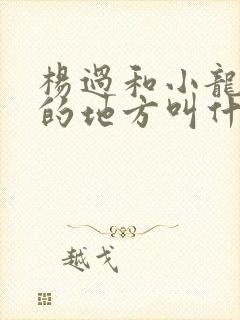 楊過和小龍
的地方叫什
越戈